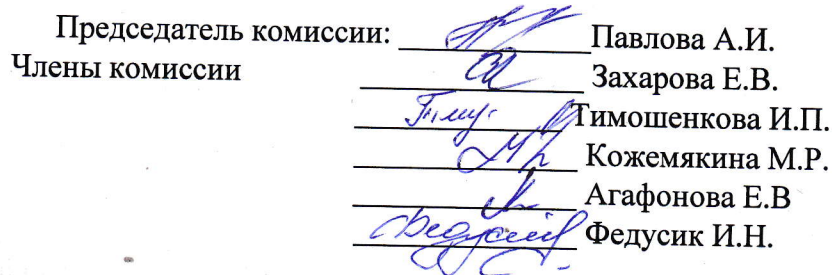 Председатель комиссии: Павлова А.И.
Члены комиссии Захарова Е.В.
Тимошенкова И.П.
Кожемякина М.Р.
Агафонова Е.В
Федусик И.Н.